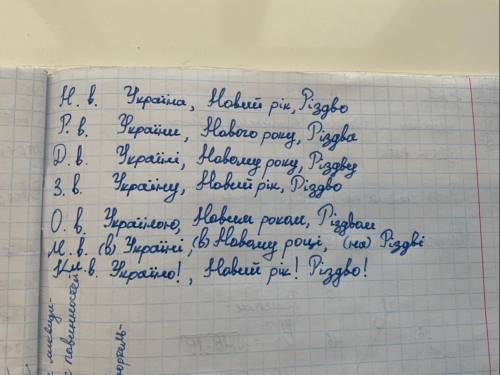 Н. в. Україна, Новий рік, Різдво
Р. в. України, Нового року, Різдва
Д. в. Україні, Новому року, Різдву
З. в. Україну, Новий рік, Різдво
О. в. Україною, Новим роком, Різдвом
М. в. (в) Україні, (в) Новому році, (на) Різдві
Кл. в. Україно!, Новий рік! Різдво!